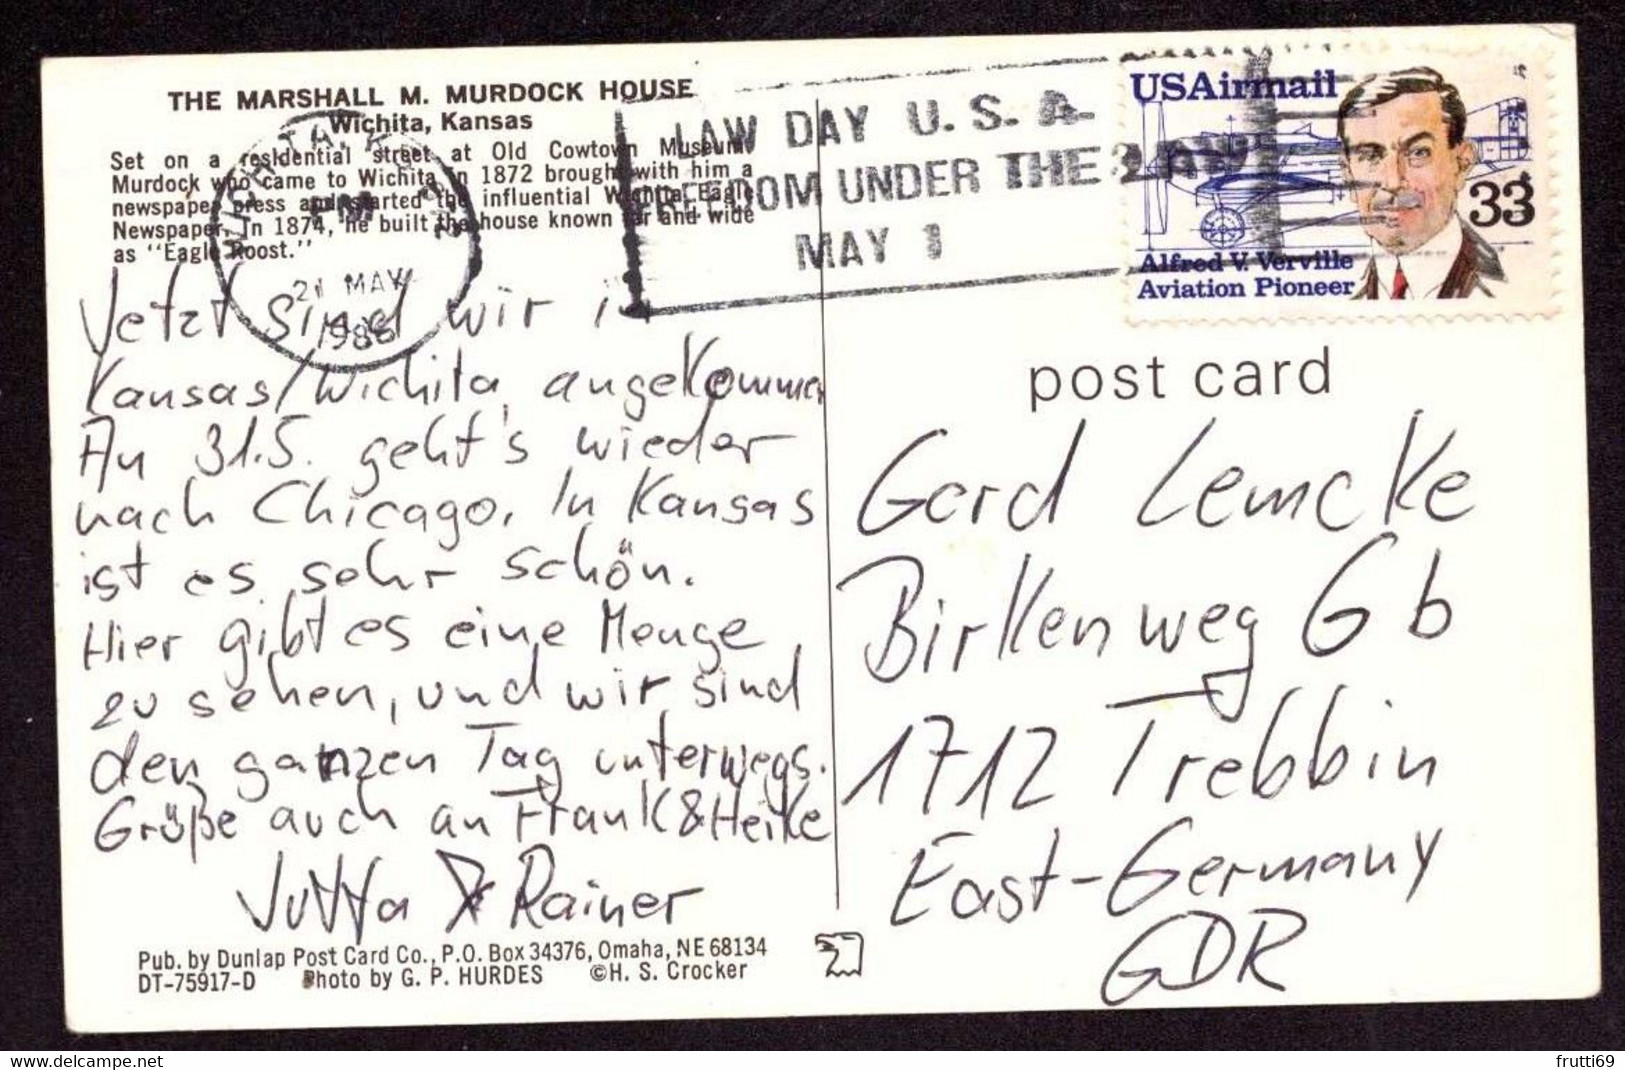 THE MARSHALL M. MURDOCK HOUSE
Wichita, Kansas
Set on a residential street at Old Cowtown Museum.
Murdock who came to Wichita in 1872 brought with him a
newspaper press and started the influential Wichita Eagle
Newspaper. In 1874, he built the house known far and wide
as "Eagle Roost."
WICHITA, K
PM
21 MAY
1986
LAW DAY U. S. A.
FREEDOM UNDER THE LAW
MAY 1
USAirmail
33
Alfred V. Verville
Aviation Pioneer
Jetzt sind wir in
Kansas/Wichita angekommen
An 31.5. geht's wieder
nach Chicago. In Kansas
ist es sehr schön.
Hier gibt es eine Menge
zu sehen, und wir sind
den ganzen Tag unterwegs.
Grüße auch an Frank & Heike
Jutta & Rainer
post card
Gerd Lemcke
Birkenweg 6b
1712 Trebbin
East-Germany
GDR
Pub. by Dunlap Post Card Co., P.O. Box 34376, Omaha, NE 68134
DT-75917-D Photo by G. P. HURDES ©H. S. Crocker
delcampe.net
frutti69